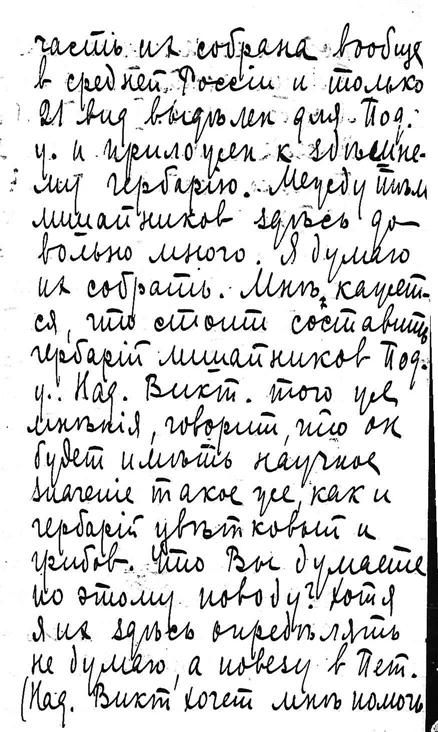 часть их собрана вообще
в средней Россіи и только
21 вид выдѣлен для Под.
у. и приложен к здѣшне-
му гербарію. Между тѣм
лишайников здѣсь до-
вольно много. Я думаю
их собрать. Мнѣ кажет-
ся, что стоит составить
гербарій лишайников Под.
у. Над. Викт. того же
мнѣнія, говорит, что он
будет имѣть научное
значеніе такое же, как и
гербарій цвѣтковых и
грибов. Что Вы думаете
по этому поводу? Хотя
я их здѣсь опредѣлять
не думаю, а повезу в Пет.
(Над. Викт хочет мнѣ помочь